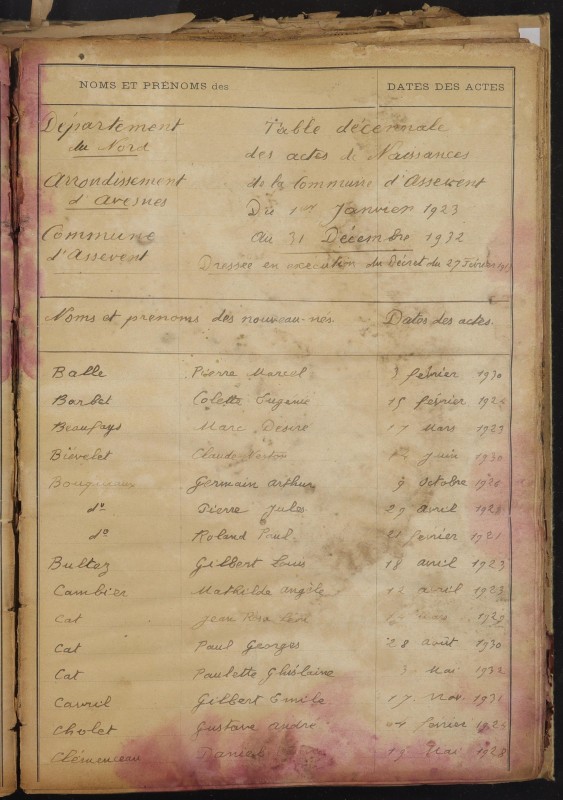 NOMS ET PRÉNOMS des
DATES DES ACTES
Département
du Nord
Arrondissement
d'Avesnes
Commune
d'Assevent
Table décennale
des actes de Naissances
de la Commune d'Assevent
Du 1er Janvier 1923
Au 31 Décembre 1932
Dressée en exécution du Décret du 27 Février
Noms et prénoms des nouveau-nés. Dates des actes.
Balle Pierre Marcel 3 février 1930
Barbet Colette Eugenie 15 février
Beaufays Marc Désiré 17 Mars 1923
Biévelet Claude Juin 1930
Germain Arthur 9 Octobre
do Pierre Jules 29 avril
do Roland Paul février
Bultez Gilbert Louis 18 avril 1923
Cambier Mathilde Angèle avril 1923
Cat Jean
Cat Paul Georges 28 août 1930
Cat Paulette Ghislaine 3 Mai 1932
Cavril Gilbert Emile 17 1931
Cholet Gustave André février
Clémenceau Daniel Mai 1928